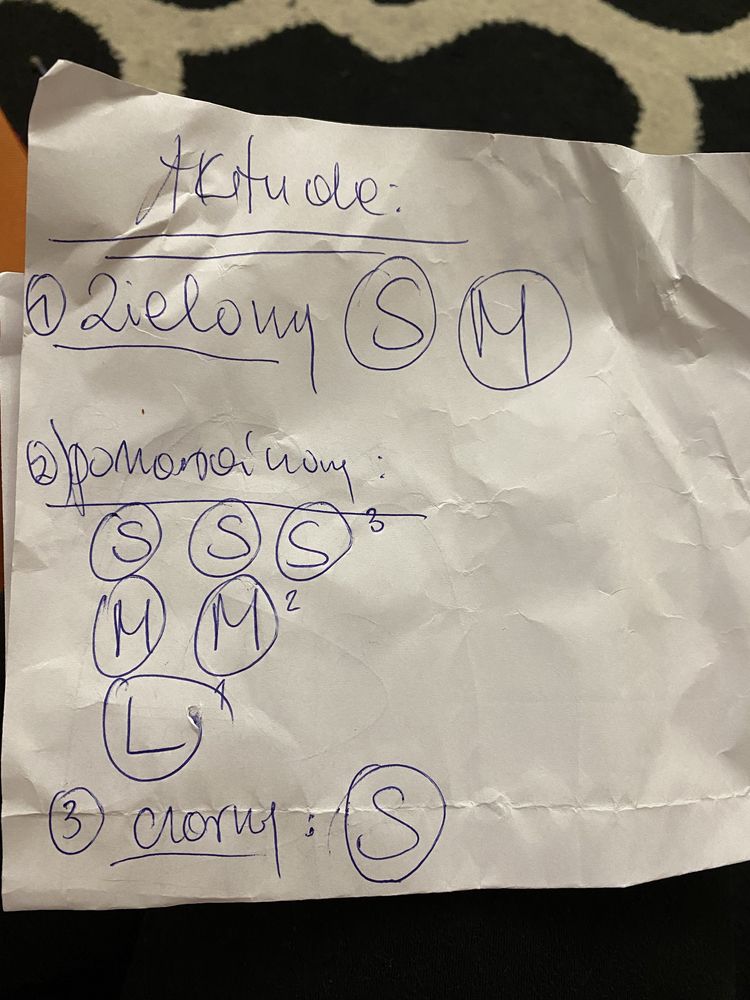 Akitude:
① Zielony S M
② pomarańczowy:
S S S 3
M M 2
L 1
③ czarny: S